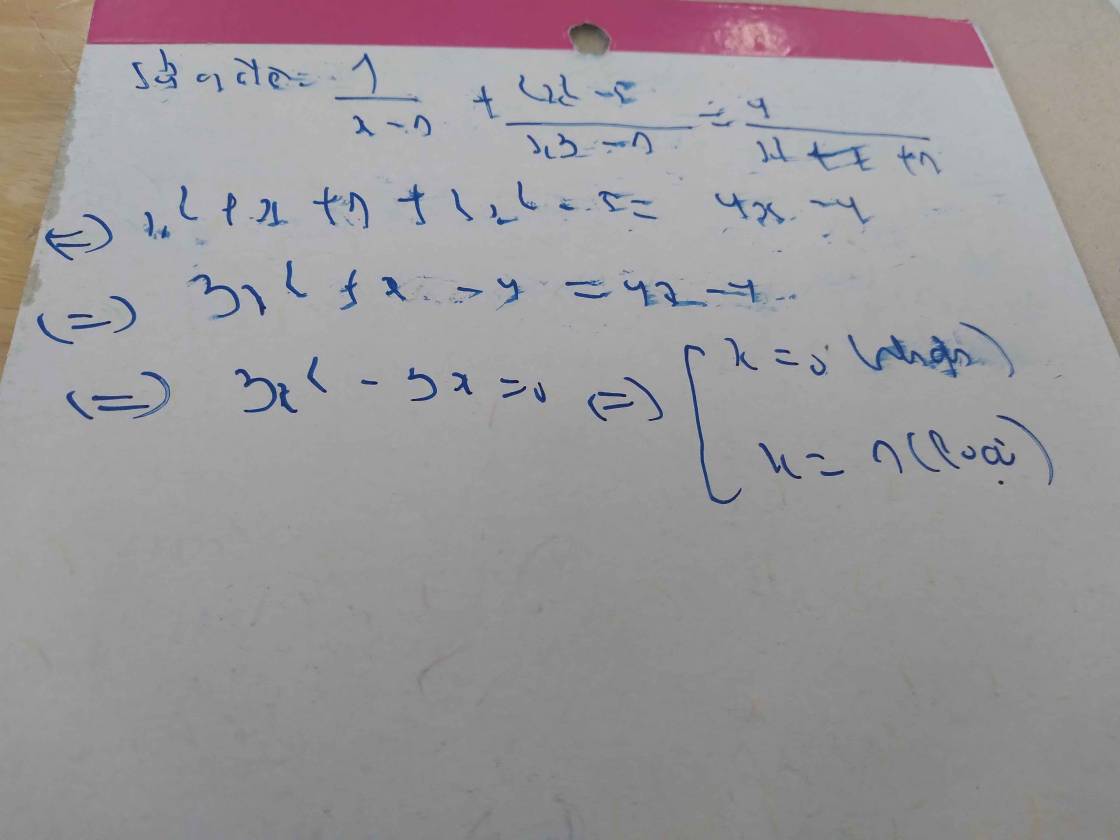 Sửa đề: \frac{1}{x-1} + \frac{2x^2-5}{x^3-1} = \frac{4}{x^2+x+1}
(=) x^2 + x + 1 + 2x^2 - 5 = 4x - 4
(=) 3x^2 + x - 4 = 4x - 4
(=) 3x^2 - 3x = 0 (=) [ x = 0 (nhận)
x = 1 (loại)